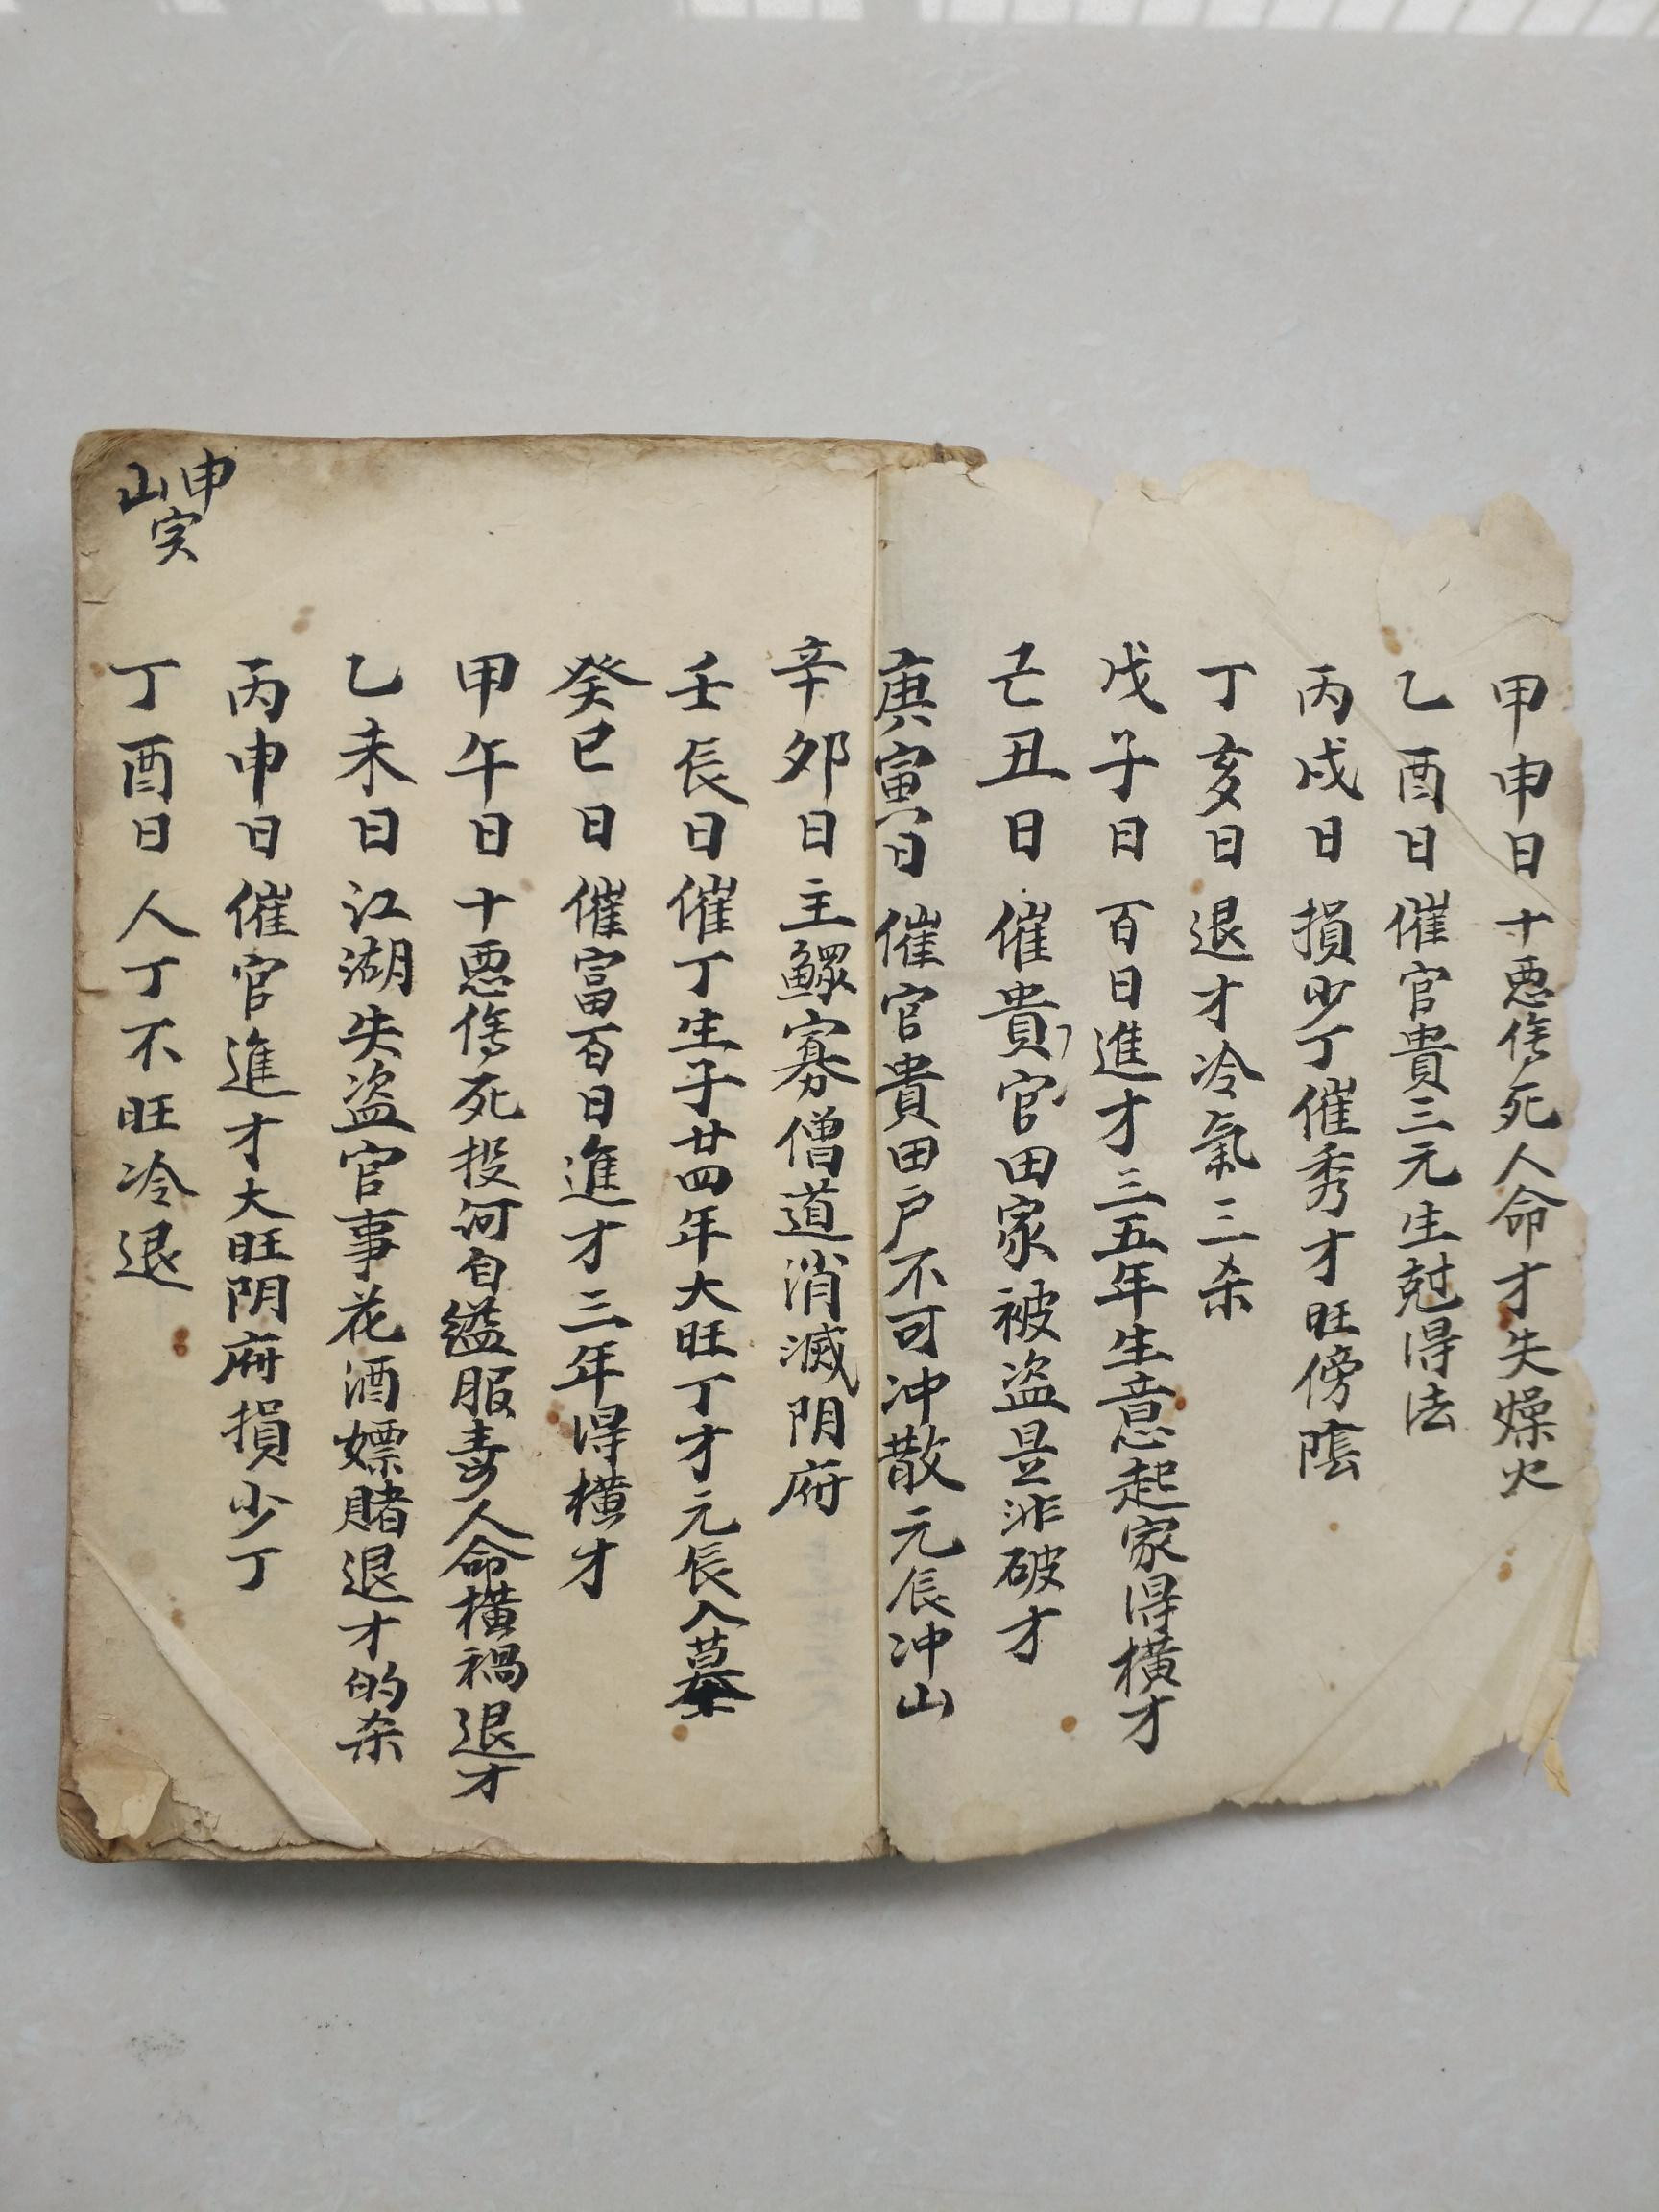 甲申日十悪傷死人命才失燥火
乙酉日催官貴三元生尅得法
丙戌日損少丁催秀才旺傍蔭
丁亥日退才冷氣三杀
戊子日百日進才三五年生意起家得橫才
己丑日催貴官田家被盗是非破才
庚寅日催官貴田户不可冲散元辰冲山
辛夘日主鰥寡僧道消滅阴府
壬辰日催丁生子廿四年大旺丁才元辰入墓
癸巳日催富百日進才三年得橫才
甲午日十悪傷死投河自縊服毒人命橫禍退才
乙未日江湖失盗官事花酒嫖賭退才的杀
丙申日催官進才大旺阴府損少丁
丁酉日人丁不旺冷退
申山